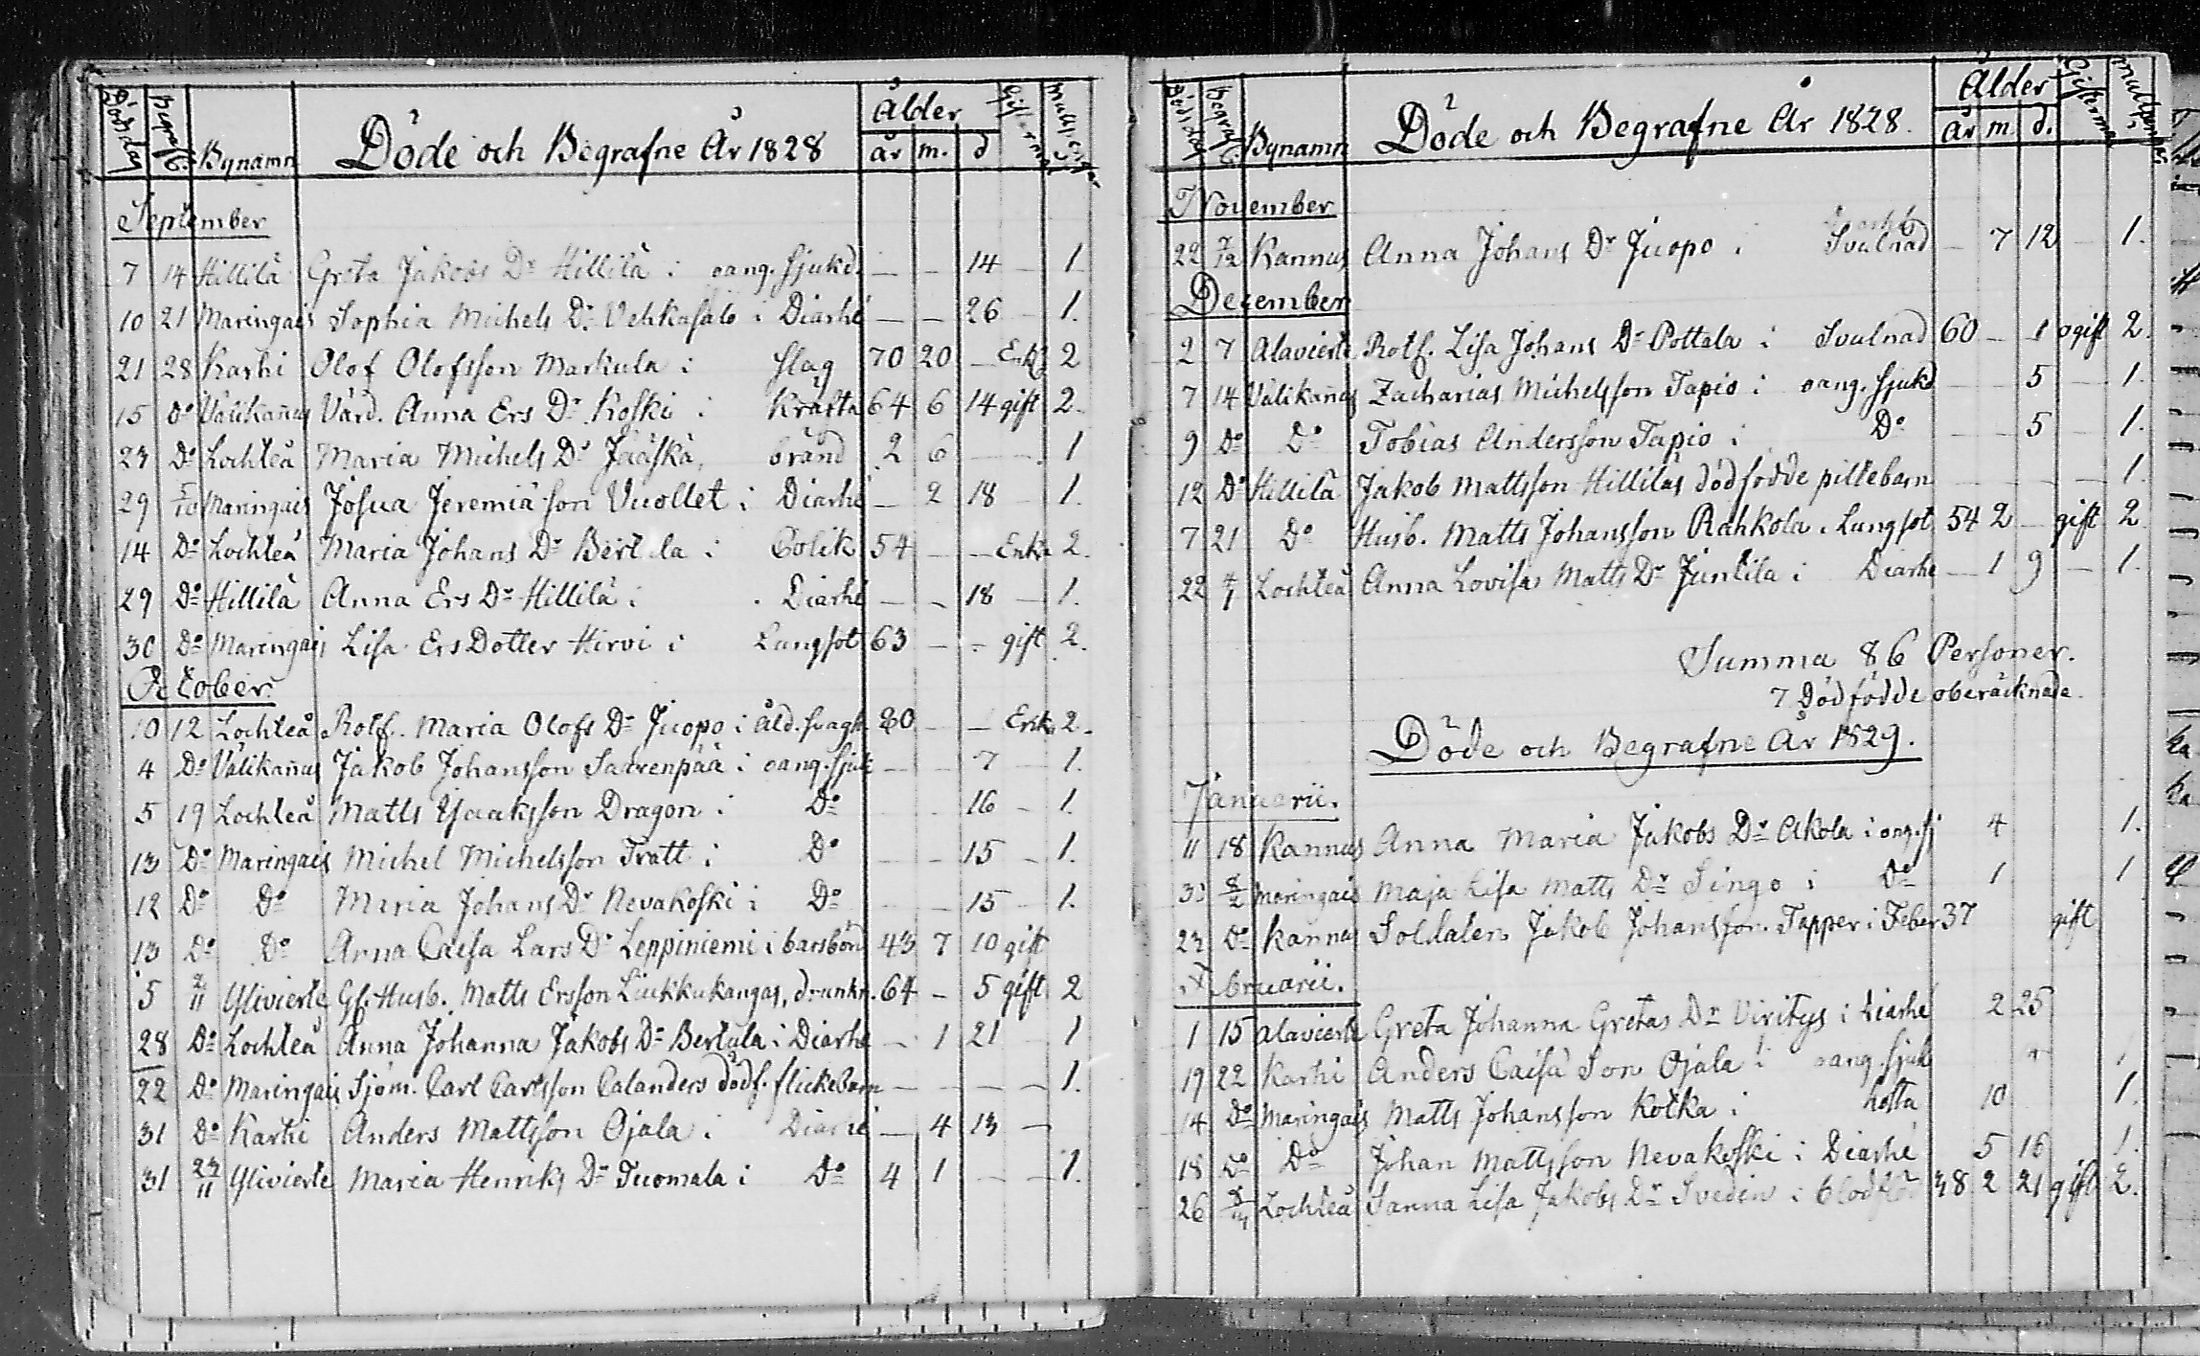 Dödsdag Begrafn. Bynamn Döde och Begrafne År 1828 Ålder år m. d Giftermål
September
7 14 Hillilä Greta Jakobs Dr Hillilä i oang. sjukd. — — 14 — 1
10 21 Maringais Sophia Michels Dr Vehkasalo i Diarhé — — 26 — 1.
21 28 Karhi Olof Olofsson Markula i slag 70 20 — Enkl 2
15 Do Välikañus Värd. Anna Ers Dr Koski i Kräfta 64 6 14 gift 2.
23 Do Lochteå Maria Michels Dr Jääskä, bränd 2 6 — 1
29 5/10 Maringais Josua Jeremiä son Vuollet i Diarhé — 2 18 — 1.
14 Do Lochteå Maria Johans Dr Bertula i Colik 54 — — Enka 2.
29 Do Hillilä Anna Ers Dr Hillilä i Diarhé — — 18 — 1.
30 Do Maringais Lisa Ers Dotter Hirvi i Lungsot 63 — — gift 2.
October
10 12 Lochteå Rotf. Maria Olofs Dr Juopo i Åld. svagh 80 — — Enk 2.
4 Do Välikañus Jakob Johansson Saarenpää i oang. sjuk — — 7 — 1.
5 19 Lochteå Matts Isaaksson Dragon i Do 16 — 1.
13 Do Maringais Michel Michelsson Tratt i Do — — 15 — 1.
12 Do Do Maria Johans Dr Nevakoski i Do — — 15 — 1.
13 Do Do Anna Caisa Lars Dr Leppiniemi i barsbörd 43 7 10 gift
5 2/11 Ylivierte Gf. Husb. Matts Ersson Liukkukangas, drunkn. 64 — 5 gift 2
28 Do Lochteå Anna Johanna Jakobs Dr Bertula i Diarhé — 1 21 1
22 Do Maringais Sjöm. Carl Carlsson Calanders dödf. flickebarn — — — — 1.
31 Do Karhi Anders Mattsson Ojala i Diarhé — 4 13 —
31 23/11 Ylivierte Maria Henriks Dr Tuomala i Do 4 1 — — 1.
Dödsdag Begrafn. Bynamn Döde och Begrafne År 1828. Ålder år m d. Giftermål
November
22 7/12 Kannus Anna Johans Dr Juopo i Svulnad — 7 12 — 1.
December
2 7 Alavierte Rotf. Lisa Johans Dr Pottala i Svulnad 60 — 1 ogift 2.
7 14 Välikañus Zacharias Michelsson Tapio i oang. sjukd 5 — 1.
9 Do Do Tobias Andersson Tapio i Do 5 — 1.
12 Do Hillilä Jakob Mattsson Hilliläs dödfödde piltebarn — — — — 1.
7 21 Do Husb. Matts Johansson Rahkola i Lungsot 54 2 — gift 2
22 4/1 Lochteå Anna Lovisa Matts Dr Juntila i Diarhé — 1 9 — 1.
Summa 86 Personer.
7 Dödfödde oberäcknade.
Döde och Begrafne År 1829.
Januarii.
11 18 Kannus Anna Maria Jakobs Dr Akola i ong. sj 4 1.
31 8/2 Maringais Maja Lisa Matts Dr Singo i Do 1 1
23 Do Kannus Soldaten Jakob Johansson Tapper i Feber 37 gift
Februarii.
1 15 Alavierte Greta Johanna Gretas Dr Viritys i Diarhé 2 25
19 22 Karhi Anders Caisä Son Ojala i oang. sjuk
14 Do Maringais Matts Johansson Kotka i hosta 10 1.
18 Do Do Johan Mattsson Nevakoski i Diarhé 5 16 1.
26 Lochteå Sanna Lisa Jakobs Dr Svedin i 38 2 21 gift 2.